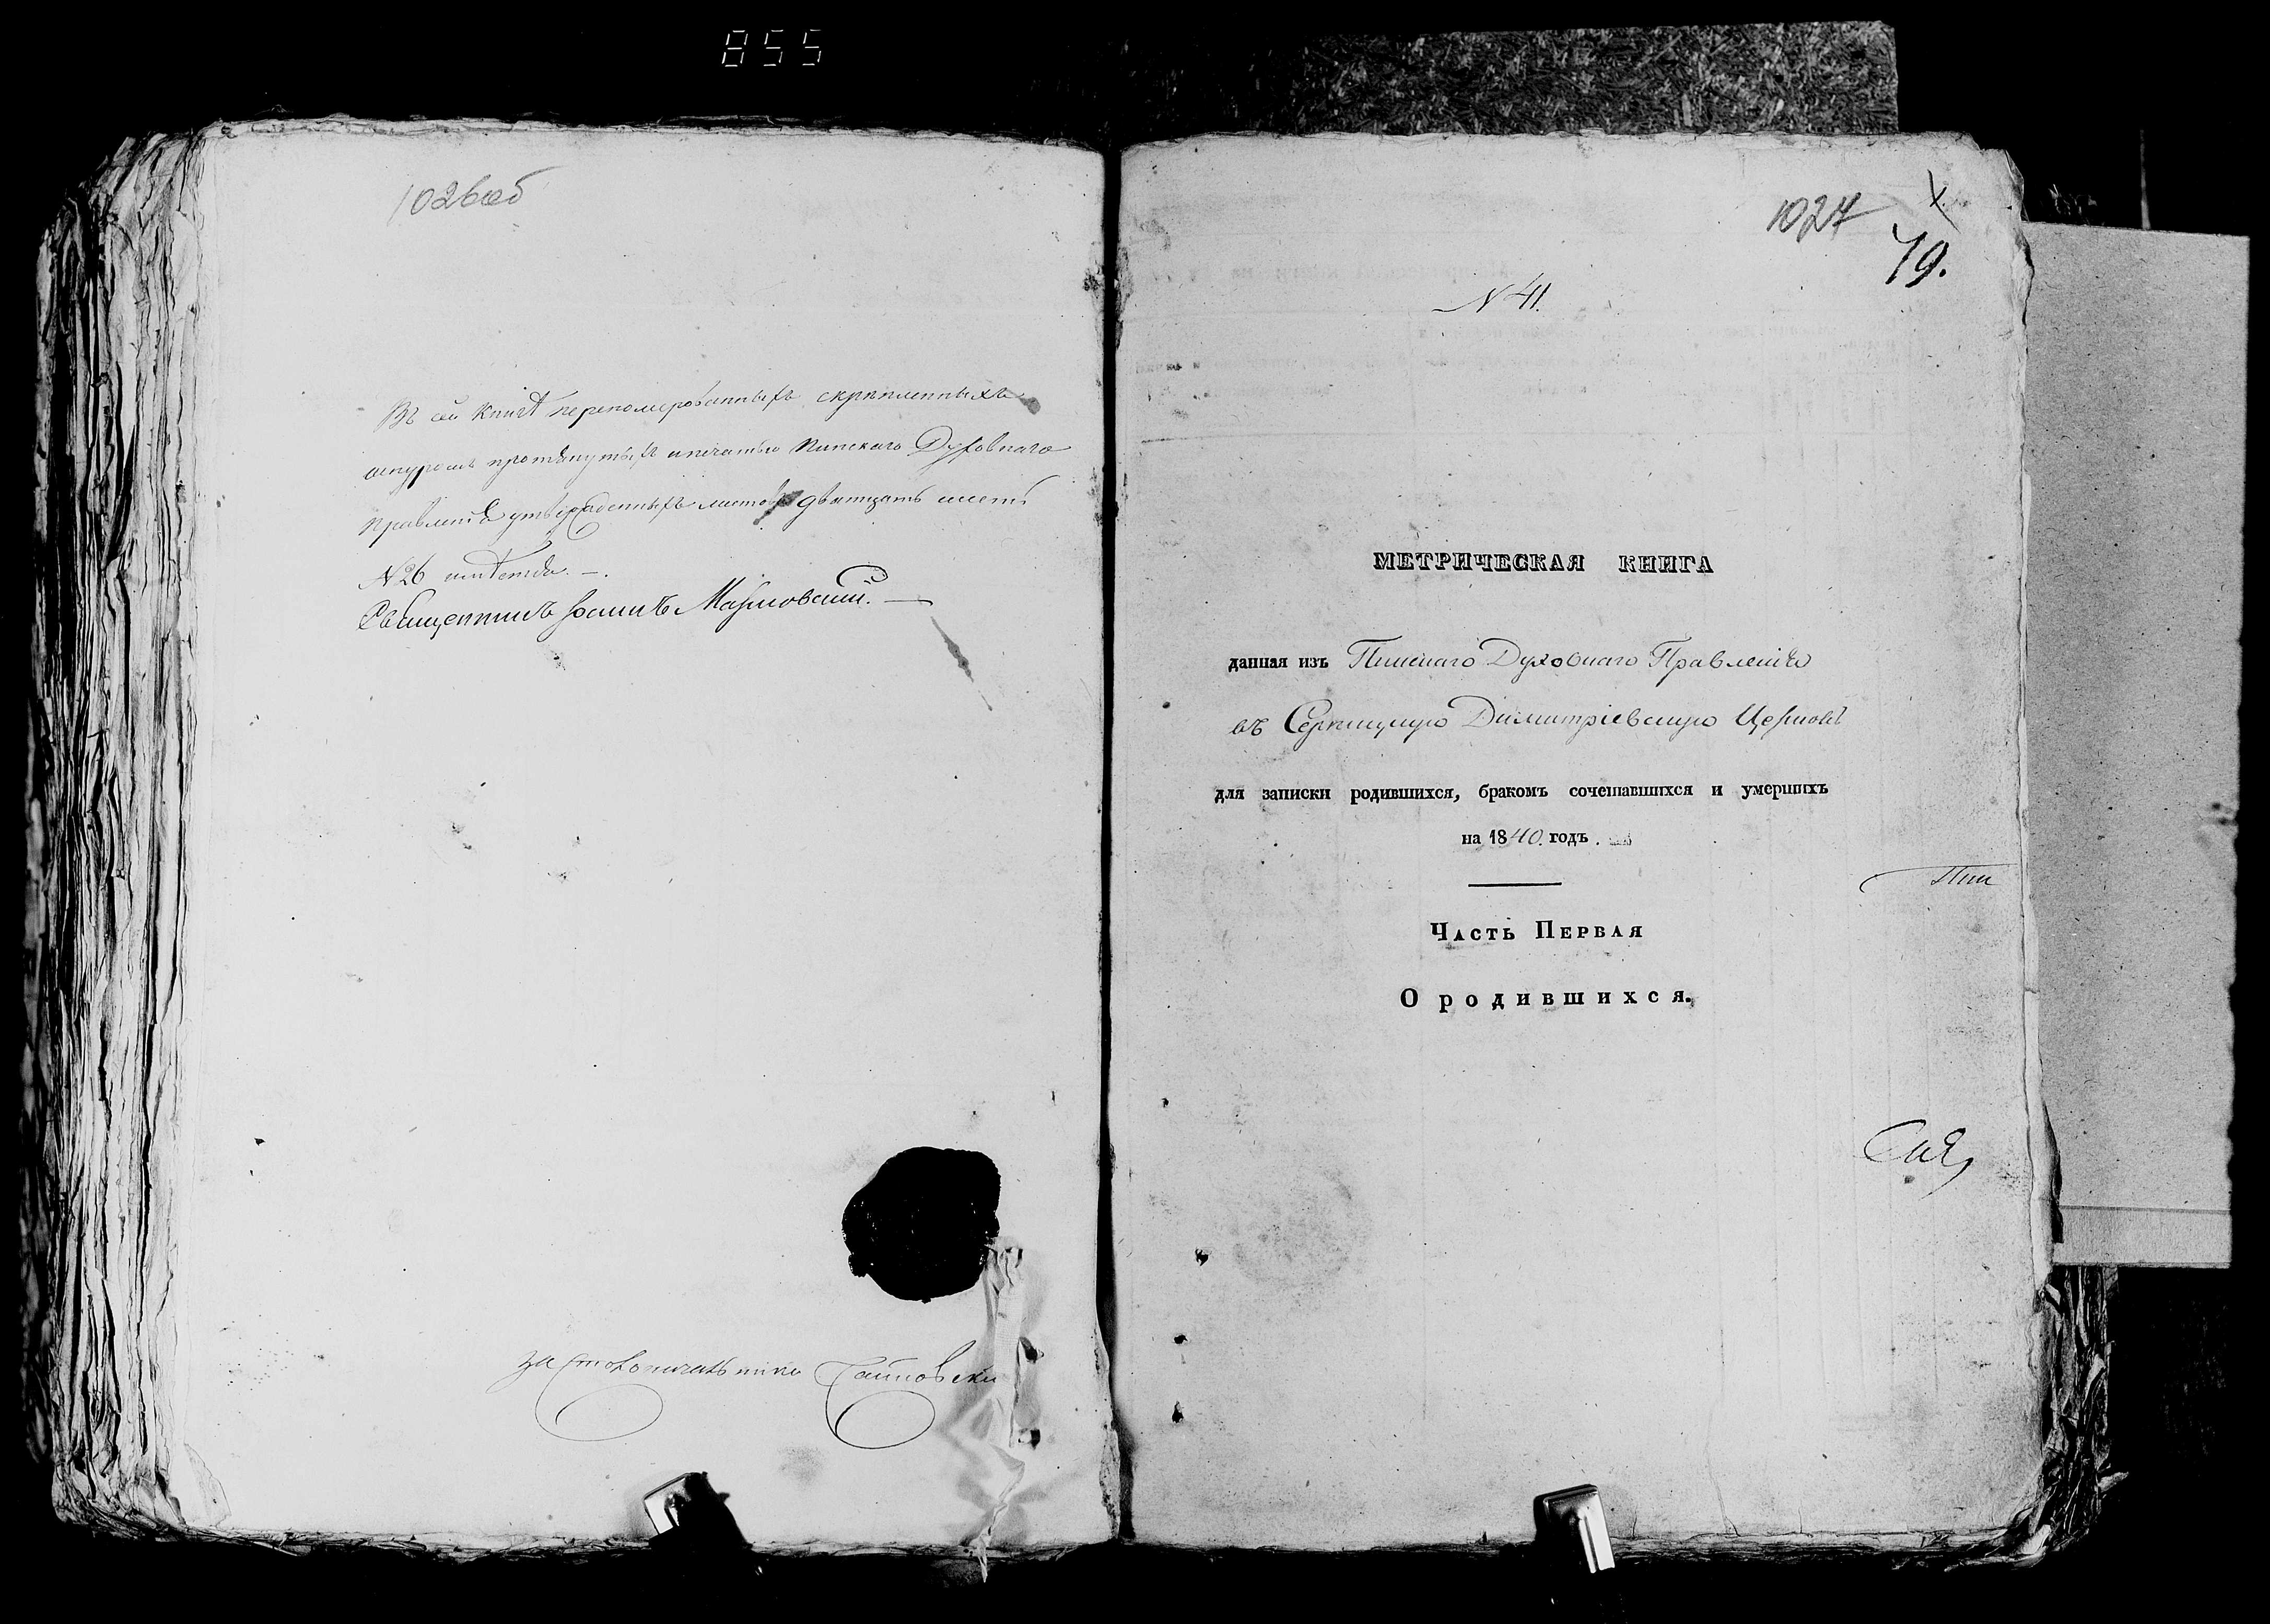 855
1026 об
Въ сей книгѣ перепомерованныхъ скрѣпленныхъ
шнуромъ протянутыхъ и печатью Пинскаго Духовнаго
Правленія утвержденныхъ листовъ дватцать шесть
№ 26 имѣется. —.
Священникъ Іоаннъ Марковскій. —
за столоначальника
1027
79.
№ 41.
МЕТРИЧЕСКАЯ КНИГА
данная изъ Пинскаго Духовнаго Правленія
въ Димитріевскую Церковь
для записки родившихся, бракомъ сочетавшихся и умершихъ
на 1840. годъ.
Пин
Часть Первая
О родившихся.